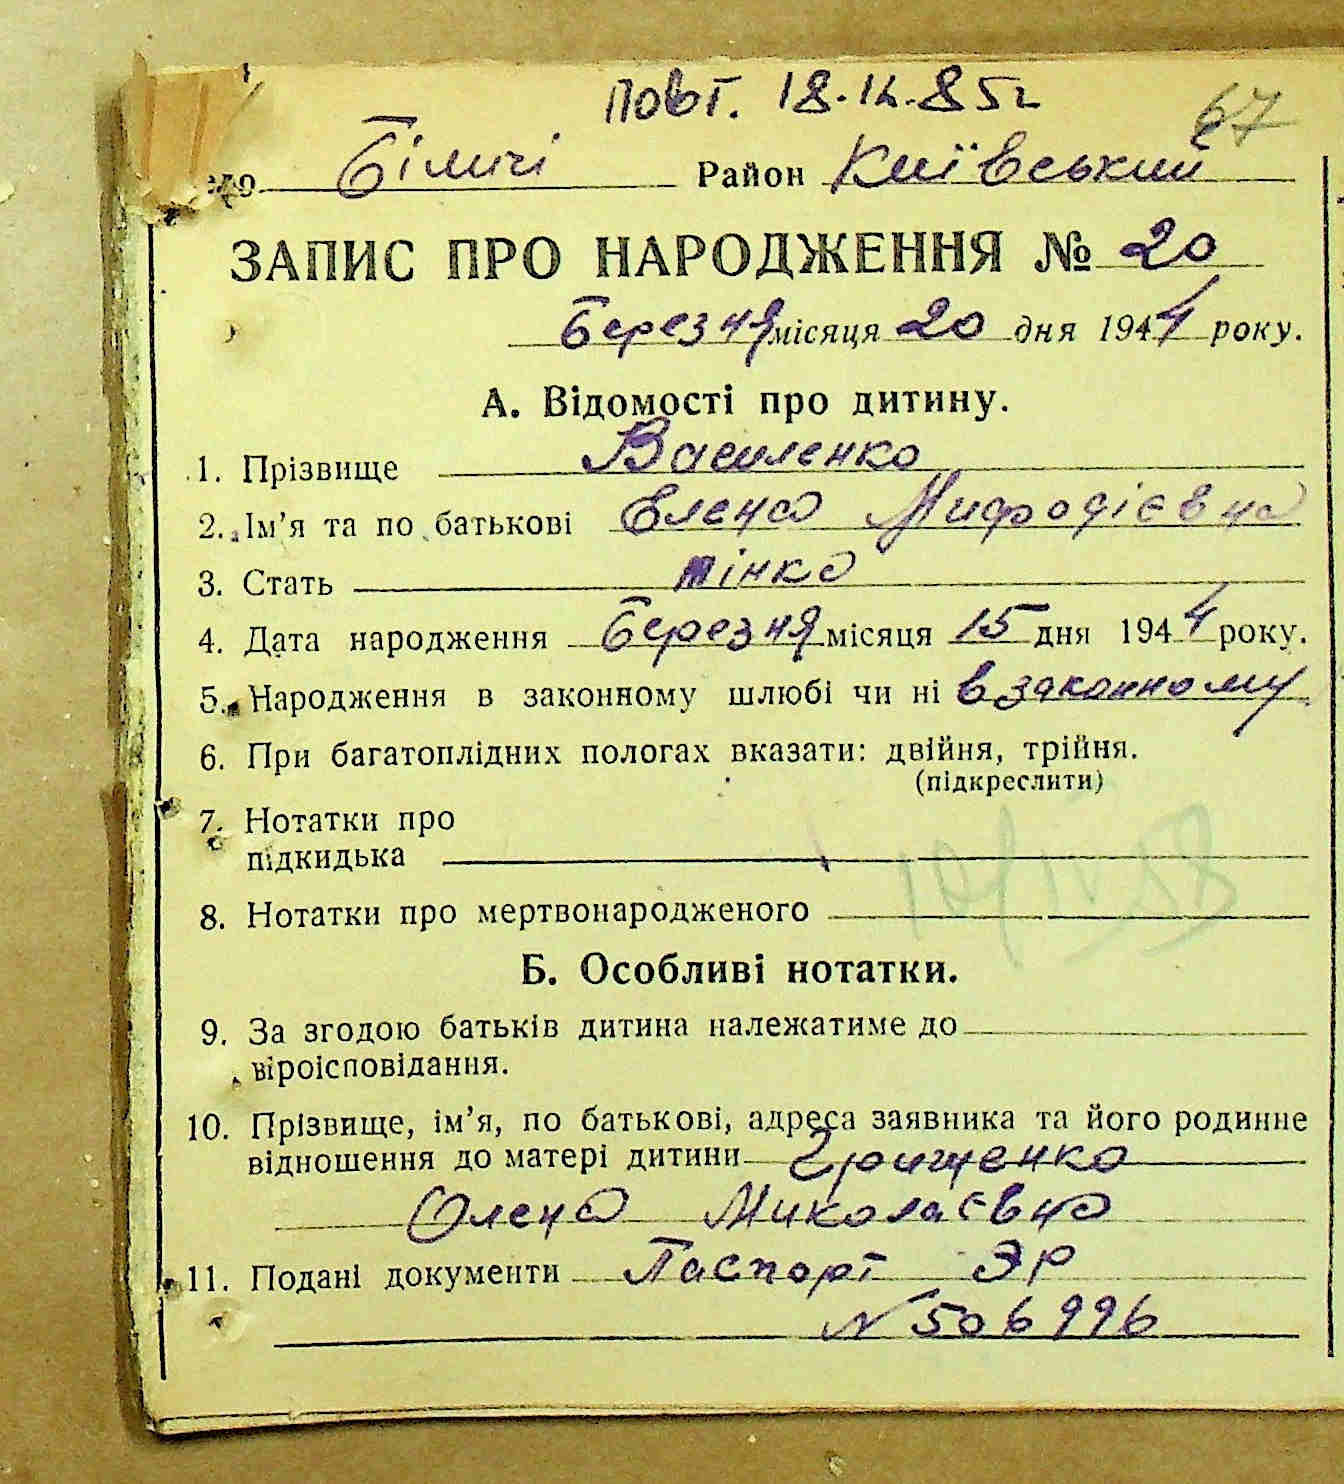 Повт. 18.IX.85г
67
Біличі Район Київський
ЗАПИС ПРО НАРОДЖЕННЯ № 20
Березня місяця 20 дня 1944 року.
А. Відомості про дитину.
1. Прізвище Василенко
2. Ім'я та по батькові Елена Мифодієвна
3. Стать жінка
4. Дата народження Березня місяця 15 дня 1944 року.
5. Народження в законному шлюбі чи ні в законному
6. При багатоплідних пологах вказати: двійня, трійня.
(підкреслити)
7. Нотатки про
підкидька
8. Нотатки про мертвонародженого
Б. Особливі нотатки.
9. За згодою батьків дитина належатиме до
віроісповідання.
10. Прізвище, ім'я, по батькові, адреса заявника та його родинне
відношення до матері дитини Грищенко
Олена Миколаєвна
11. Подані документи Паспорт ЭР
N 506996